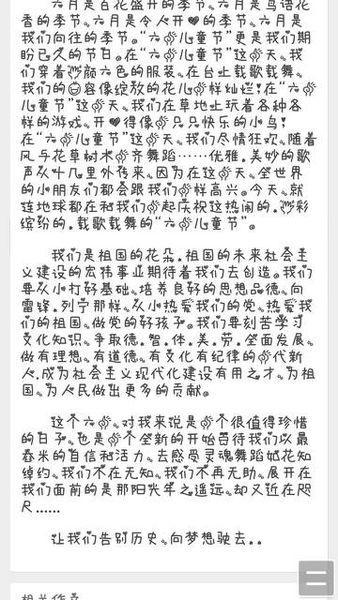 六月是百花盛开的季节、六月是鸟语花
香的季节、六月是令人开心的季节、六月是
我们向往的季节。“六一儿童节”更是我们期
盼已久的节日。在“六一儿童节”这一天、我
们穿着五颜六色的服装、在台上载歌载舞、
我们的笑容像绽放的花儿一样灿烂!在“六一
儿童节”这一天、我们在草地上玩着各种各
样的游戏、开心得像一只只快乐的小鸟!
在“六一儿童节”这一天、我们尽情狂欢、随着
风与花草树木一齐舞蹈……优雅、美妙的歌
声从十几里外传来、因为在这一天、全世界
的小朋友们都会跟我们一样高兴。今天、就
连地球都在和我们一起庆祝这热闹的、五彩
缤纷的、载歌载舞的“六一儿童节”。
我们是祖国的花朵、祖国的未来社会主
义建设的宏伟事业期待着我们去创造。我们
要从小打好基础、培养良好的思想品德、向
雷锋、列宁那样、从小热爱我们的党、热爱我
们的祖国、做党的好孩子。我们要刻苦学习
文化知识、争取德、智、体、美、劳、全面发展、
做有理想、有道德、有文化有纪律的一代新
人、成为社会主义现代化建设有用之才、为祖
国、为人民做出更多的贡献。
这个六一、对我来说是一个很值得珍惜
的日子、也是一个全新的开始等待我们以最
春米的自信和活力、去感受灵魂舞蹈如花如
绰约、我们不在无知、我们不再无助、展开在
我们面前的是那阳光年之遥远、却又近在咫
尺......
让我们告别历史、向梦想驶去..